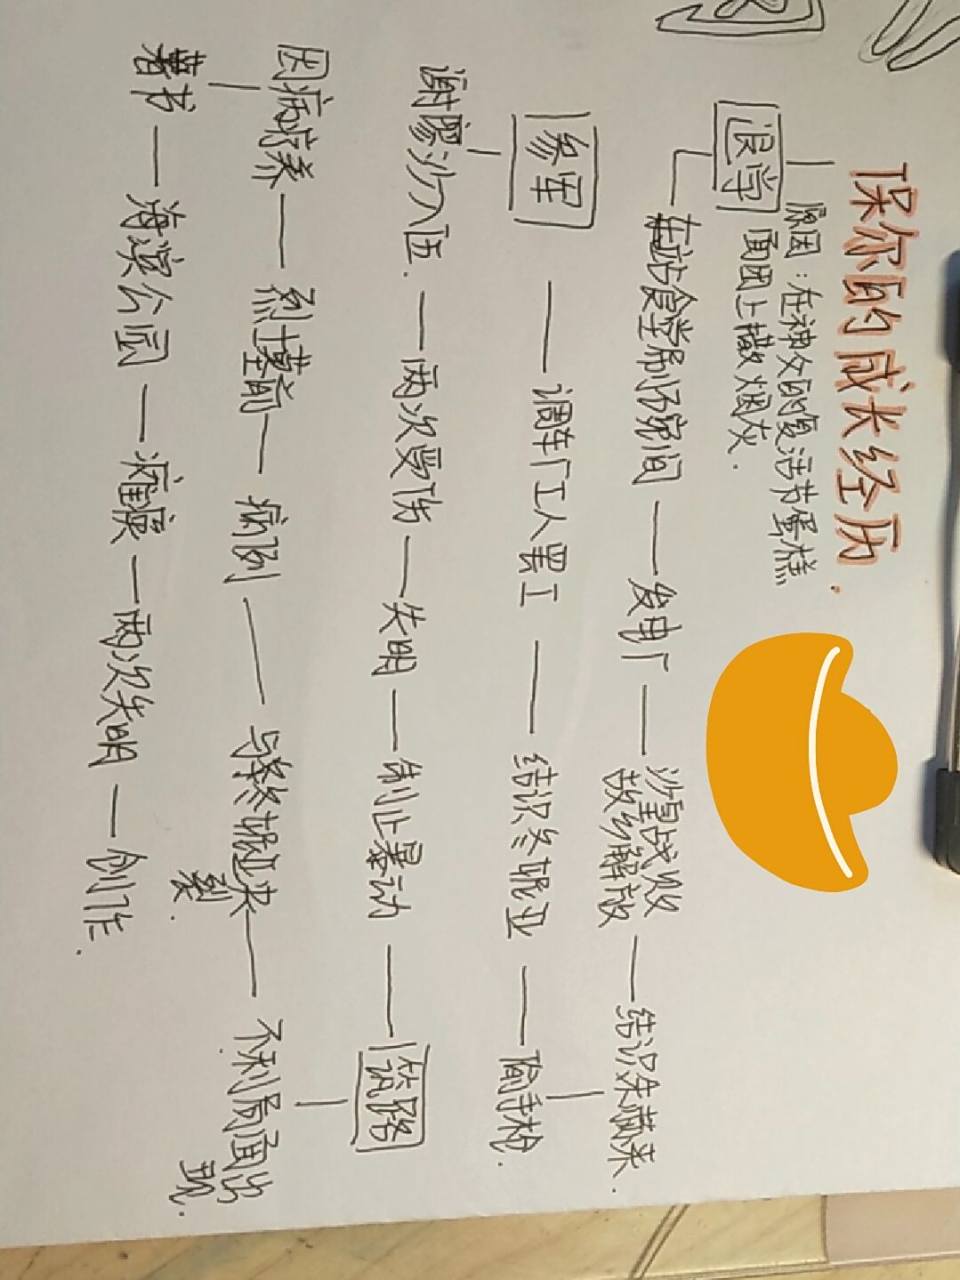 保尔的成长经历.
原因:在神父的复活节蛋糕
面团上撒烟灰.
退学
车站食堂刷碗间 — 发电厂 — 沙皇战败 故乡解放 — 结识朱赫来.
参军 — 调车厂工人罢工 — 结识冬妮亚 — 偷手枪.
谢廖沙入伍. — 两次受伤 — 失明 — 制止暴动 — 筑路
因病疗养 — 烈士墓前 — 病例 — 与冬妮亚决裂. — 不利局面出现.
著书 — 海滨公园 — 瘫痪 — 两次失明 — 创作.